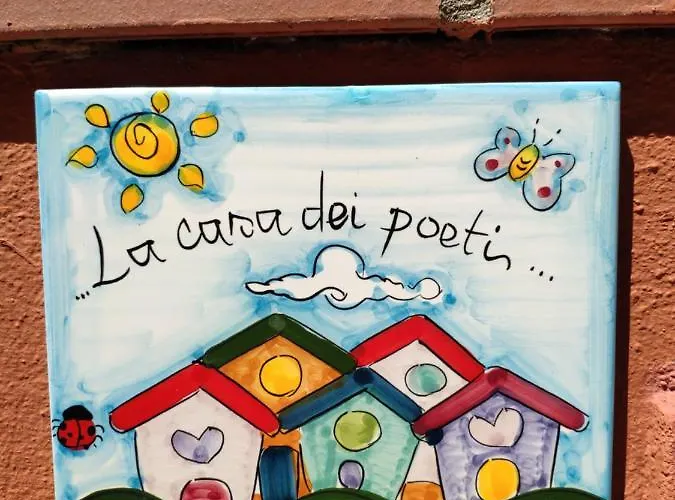 ...La casa dei poeti...